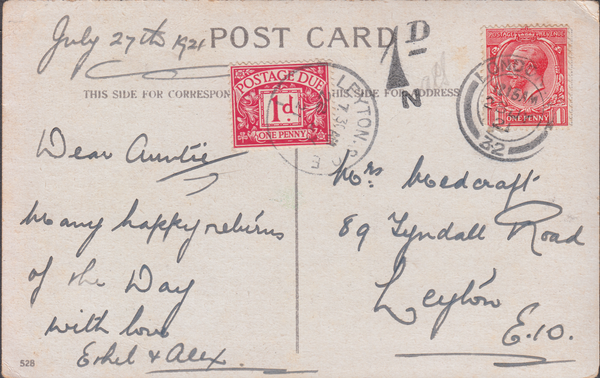 July 27th 1921
POST CARD
1D
N
POSTAGE DUE
1d.
ONE PENNY
LEYTON.
7.30AM
E
LONDON
POSTAGE REVENUE
1 ONE PENNY 1
32
THIS SIDE FOR CORRESPON
HIS SIDE FOR ADDRESS
Dear Auntie
Many happy returns
of the Day
with love
Ethel & Alex.
Mrs Medcraft
89 Tyndall Road
Leyton
E.10.
528